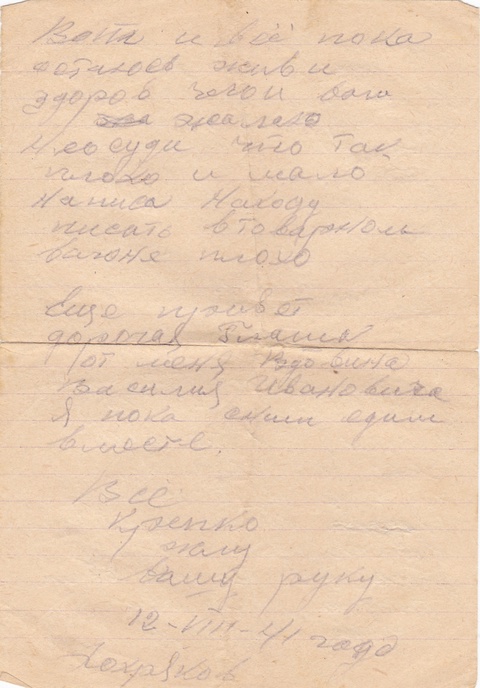 Вотъ и всё пока
остаюсь жив и
здоров чегои вам
желаю
Неосуди что так
плохо и мало
написа на ходу
писать втоварном
вагоне плохо
Еще привет
дорогая
от меня Вдовина
Василия Ивановича
Я пока сним едим
вместе.
Всё
Крепко
жму
вашу руку
12-VIII-41 года
Хохряков